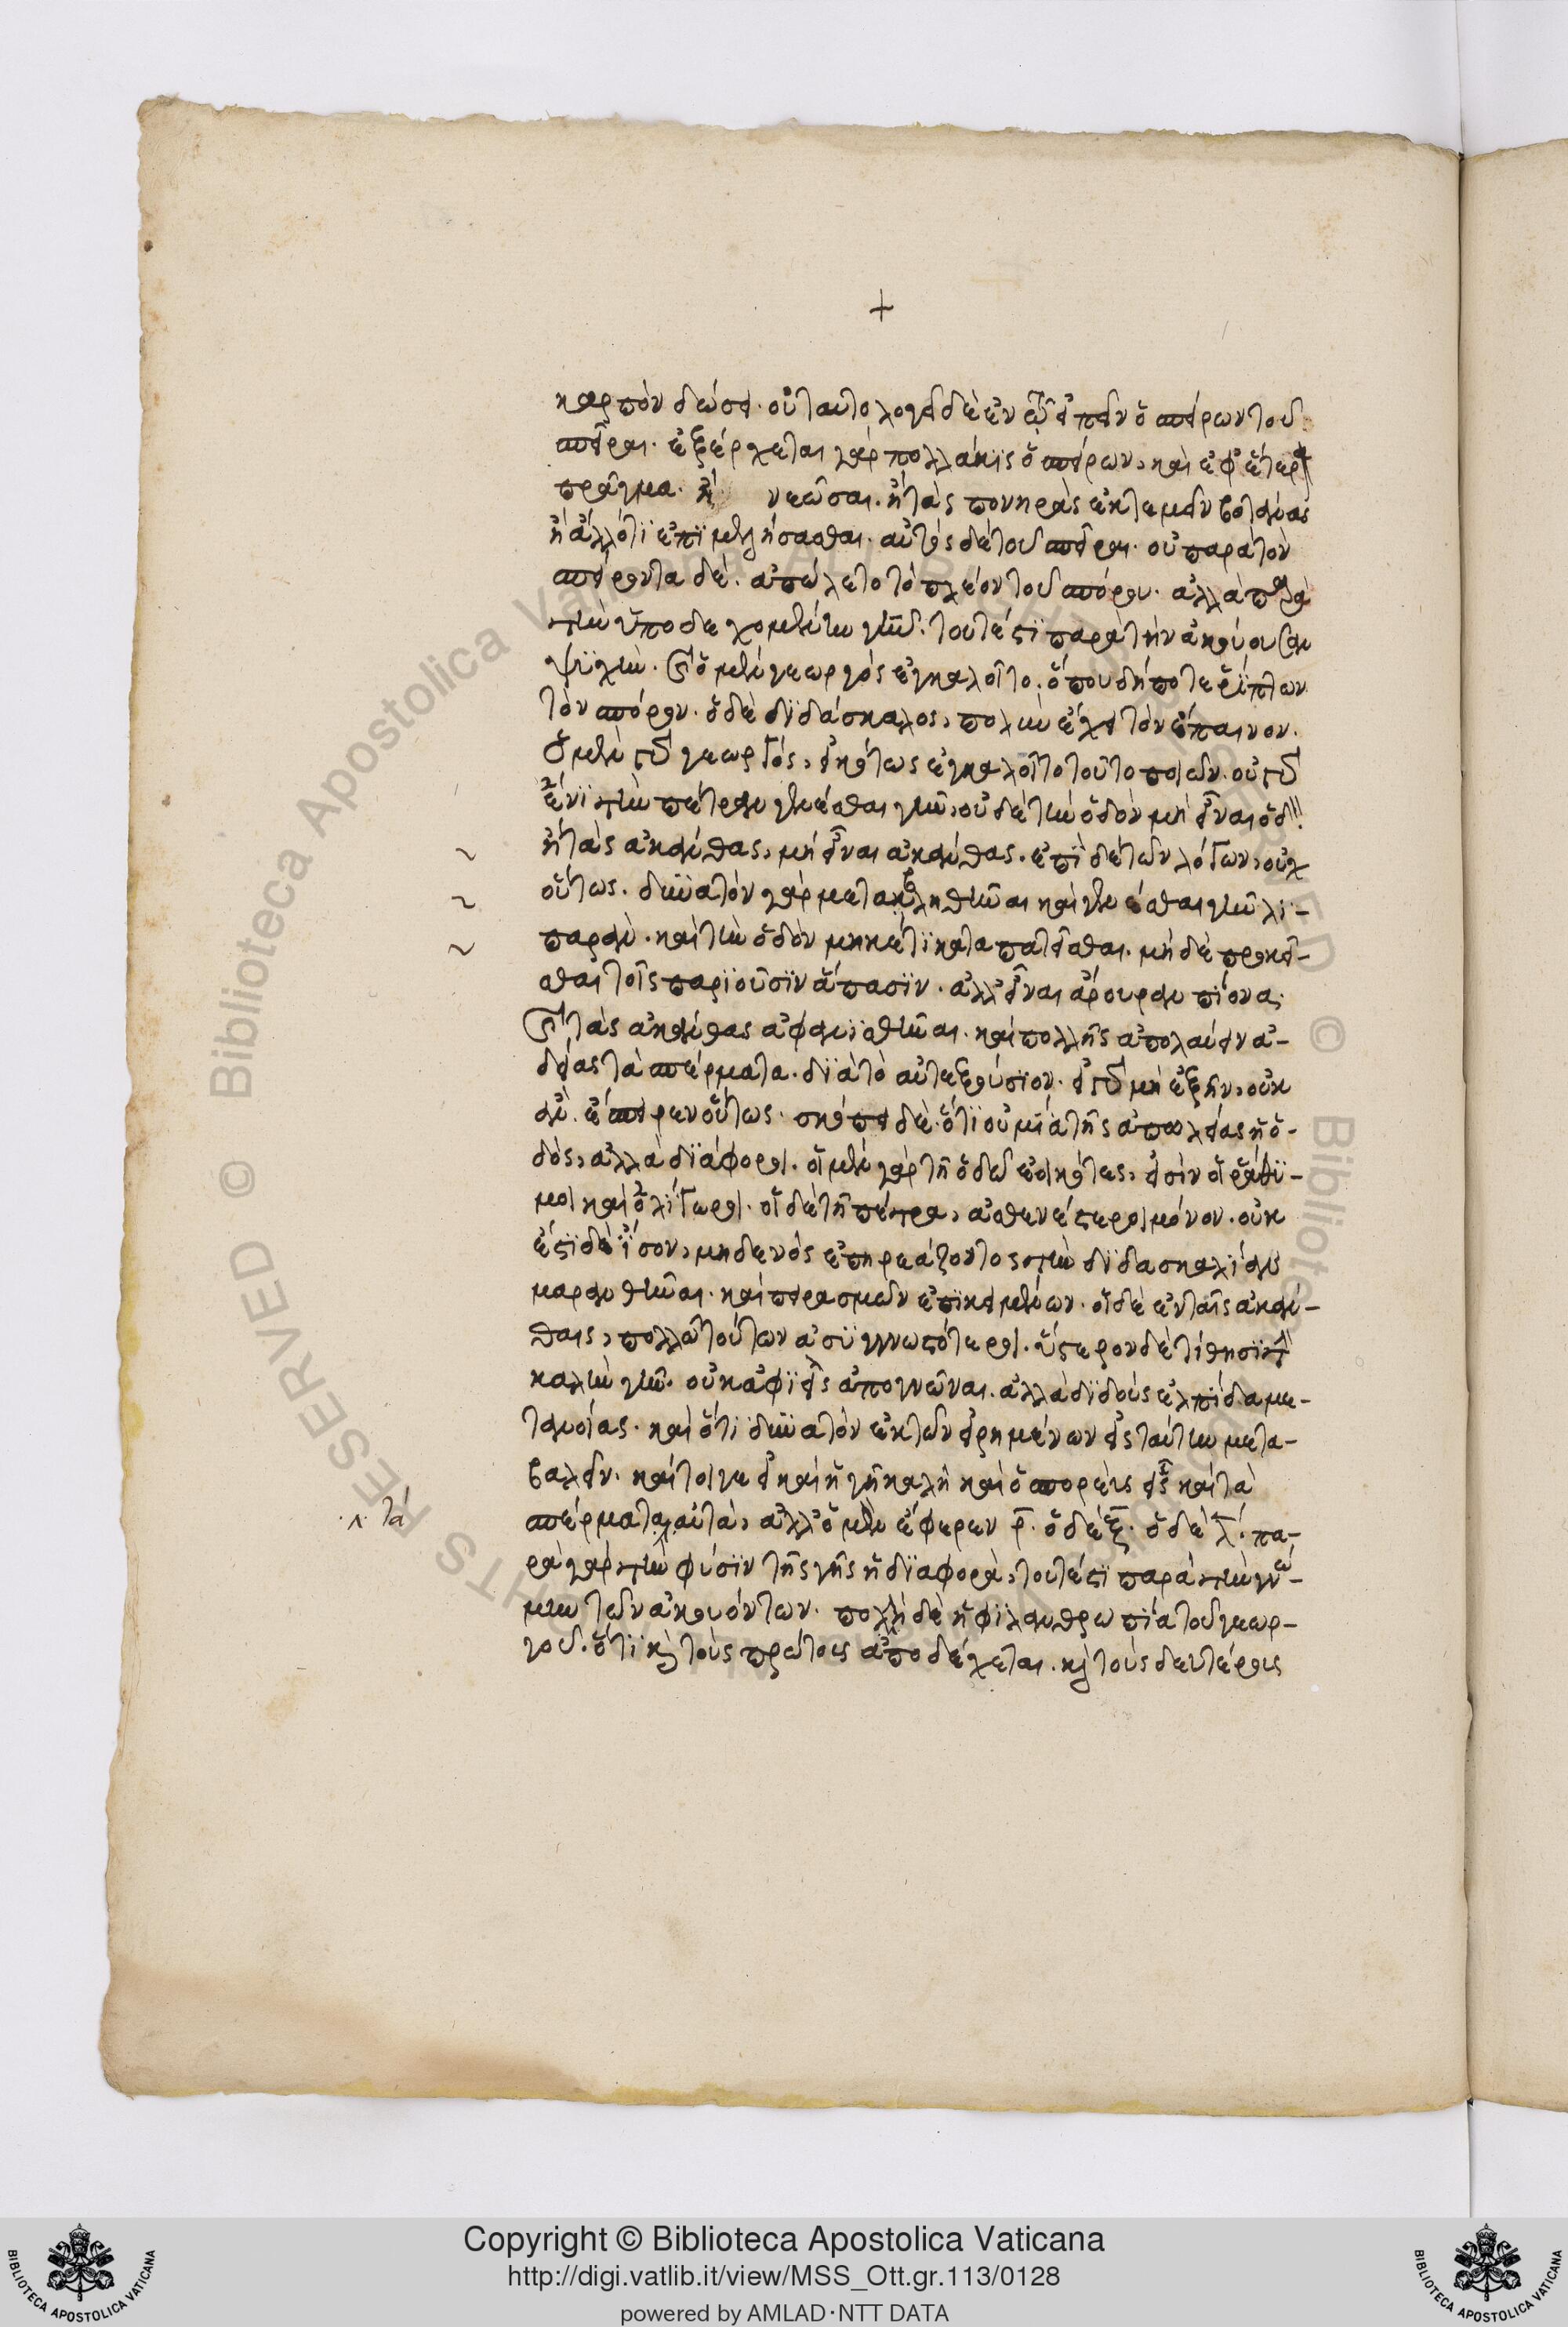 +
καρπὸν δώσει. οὐ ταυτολογεῖ δὲ ἐν τῷ εἰπεῖν ὁ σπείρων τοῦ
σπεῖραι. ἐξέρχεται γὰρ πολλάκις ὁ σπείρων, καὶ ἐφ' ἕτερον
πράγμα. ἢ νεῶσαι. ἢ τὰς πονηρὰς ἐκτεμεῖν βοτάνας
ἢ ἄλλό τι ἐπιμελήσασθαι. αὐτὸς δὲ τοῦ σπεῖραι. οὐ παρὰ τὸν
σπείροντα δὲ. ἀπώλετο τὸ πλέον τοῦ σπόρου. ἀλλὰ παρὰ
τὴν ὑποδεχομένην γῆν. τουτέστι παρὰ τὴν ἀκούουσαν
ψυχήν. καὶ ὁ μὲν γεωργὸς ἐγκαλοῖτο. ὁπουδήποτε ῥίπτων
τὸν σπόρον. ὁ δὲ διδάσκαλος, πολὺν ἔχει τὸν ἔπαινον.
ὁ μὲν γὰρ γεωργός, εἰκότως ἐγκαλοῖτο τοῦτο ποιῶν. οὐ γὰρ
ἔνι τὴν πέτραν γενέσθαι γῆν, οὐδὲ τὴν ὁδὸν μὴ εἶναι ὁδ
ἢ τὰς ἀκάνθας, μὴ εἶναι ἀκάνθας. ἐπὶ δὲ τῶν λόγων, οὐχ
οὕτως. δυνατὸν γὰρ μετακληθῆναι καὶ γενέσθαι γῆν λι-
παράν. καὶ τὴν ὁδὸν μηκέτι καταπατεῖσθαι. μὴ δὲ προκεῖ-
σθαι τοῖς παριοῦσιν ἅπασιν. ἀλλ' εἶναι ἄρουραν πίονα.
καὶ τὰς ἀκάνθας ἀφανισθῆναι. καὶ πολλῆς ἀπολαύειν ἀ-
δείας τὰ σπέρματα. διὰ τὸ αὐτεξούσιον. εἰ γὰρ μὴ ἐξῆν, οὐκ
ἂν ἔσπειρεν οὕτως. σκόπει δὲ ὅτι οὐ μία τῆς ἀπωλείας ἡ ὁ-
δός, ἀλλὰ διάφοροι. οἱ μὲν γὰρ τῇ ὁδῷ ἐοικότες, εἰσὶν οἱ ῥάθυ-
μοι καὶ ὀλίγωροι. οἱ δὲ τῇ πέτρα, ἀσθενέστεροι μόνον. οὐκ
ἔστι δὲ ἴσον, μηδενὸς ἐπηρεάζοντος τὴν διδασκαλίαν
μαρανθῆναι. καὶ πειρασμῶν ἐπικειμένων. οἱ δὲ ἐν ταῖς ἀκάν-
θαις, πολλῷ τούτων ἀσυγγνωστότεροι. ὕστερον δὲ τίθησι τὴν
καλὴν γῆν. οὐκ ἀφιεὶς ἀπογνῶναι. ἀλλὰ διδοὺς ἐλπίδα με-
τανοίας. καὶ ὅτι δυνατὸν ἐκ τῶν εἰρημένων εἰς ταύτην μετα-
βαλεῖν. καίτοιγε εἰ καὶ ἡ γῆ καλὴ καὶ ὁ σπορεὺς εἷς καὶ τὰ
.λ. τὰ
σπέρματα αὐτά, ἀλλ' ὁ μὲν ἔφερεν ρ. ὁ δὲ ξ. ὁ δὲ λ. πα-
ρὰ γὰρ τὴν φύσιν τῆς γῆς ἡ διαφορά, τουτέστι παρὰ τὴν γνώ-
μην τῶν ἀκουόντων. πολλὴ δὲ ἡ φιλανθρωπία τοῦ γεωρ-
γοῦ. ὅτι καὶ τοὺς πρώτους ἀποδέχεται. καὶ τοὺς δευτέρους
Copyright © Biblioteca Apostolica Vaticana
http://digi.vatlib.it/view/MSS_Ott.gr.113/0128
powered by AMLAD·NTT DATA
BIBLIOTECA APOSTOLICA VATICANA
BIBLIOTECA APOSTOLICA VATICANA